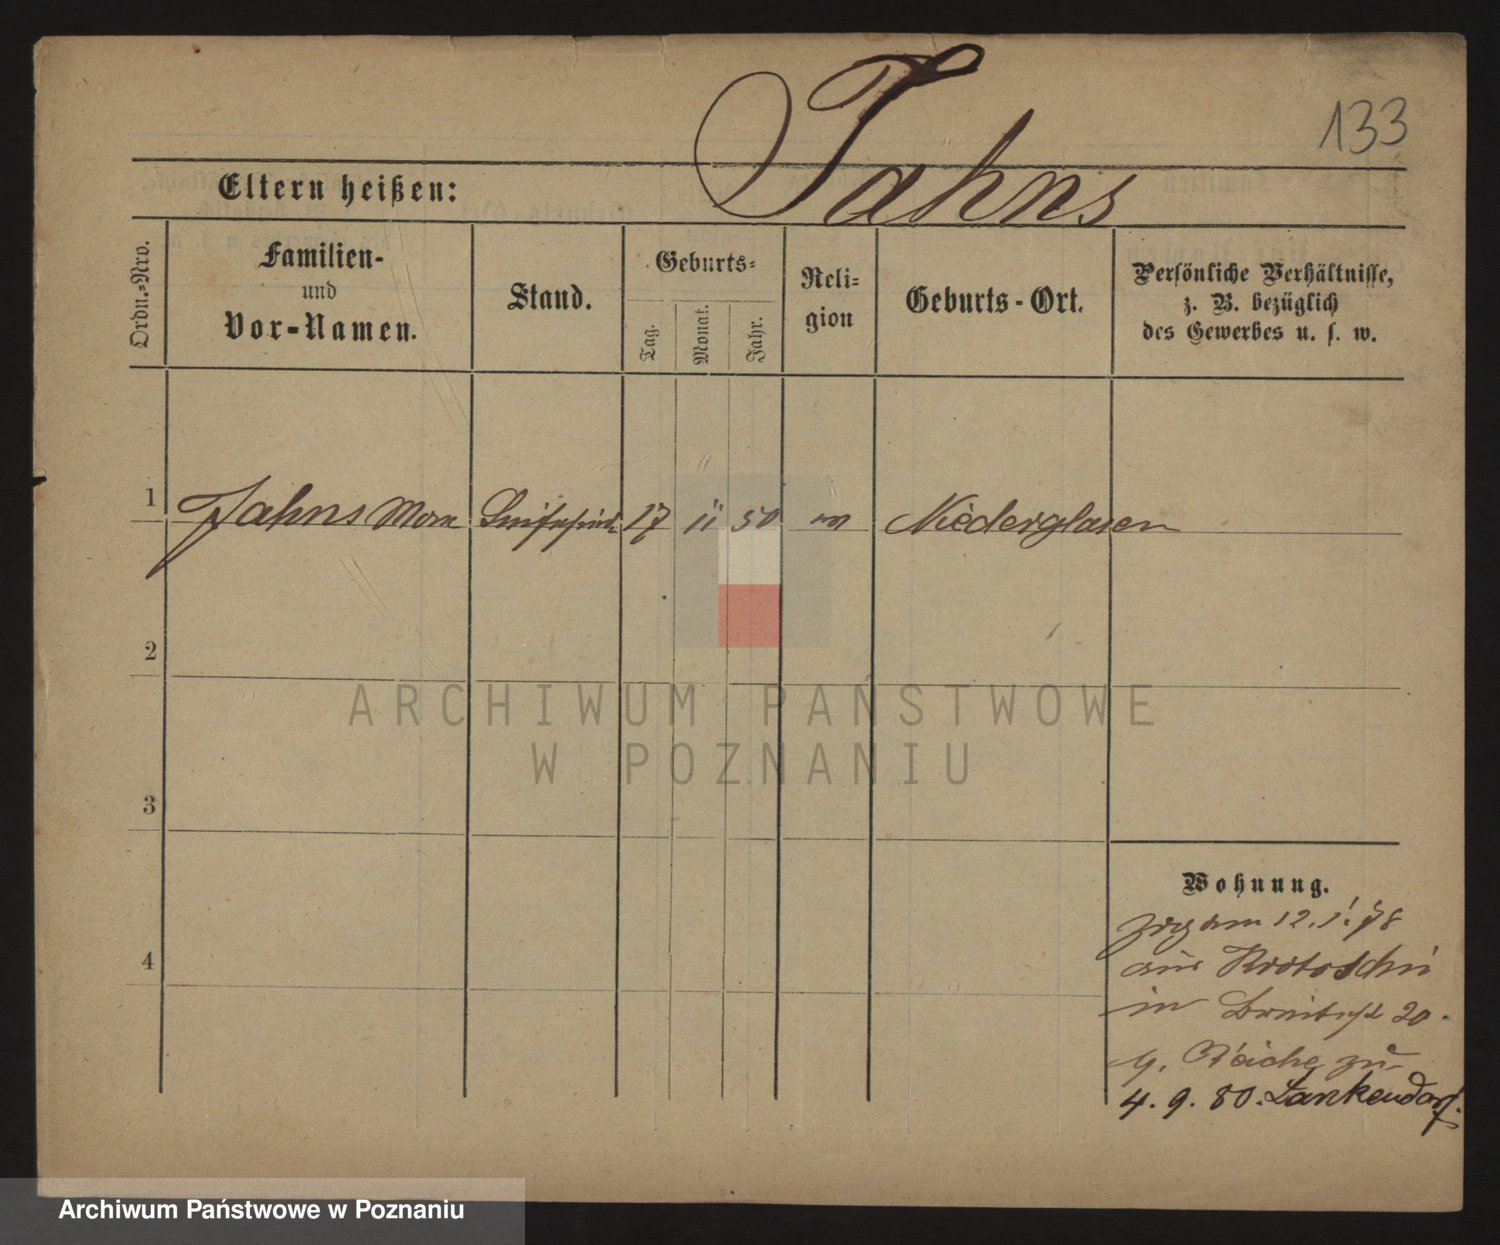 133
Jahns
Eltern heißen:
Ordn.-Nro.
Familien-
und
Vor-Namen.
Stand.
Geburts-
Tag.
Monat.
Jahr.
Reli-
gion
Geburts-Ort.
Persönliche Verhältnisse,
z. B. bezüglich
des Gewerbes u. s. w.
1 Jahns Max 17 11 50 Niederglasen
2
ARCHIWUM PAŃSTWOWE
W POZNANIU
3
Wohnung.
zog am 12.1.78
aus Krotoschin
in Breitestr 20.
4
Reiche zu
4. 9. 80. Lankendorf.
Archiwum Państwowe w Poznaniu